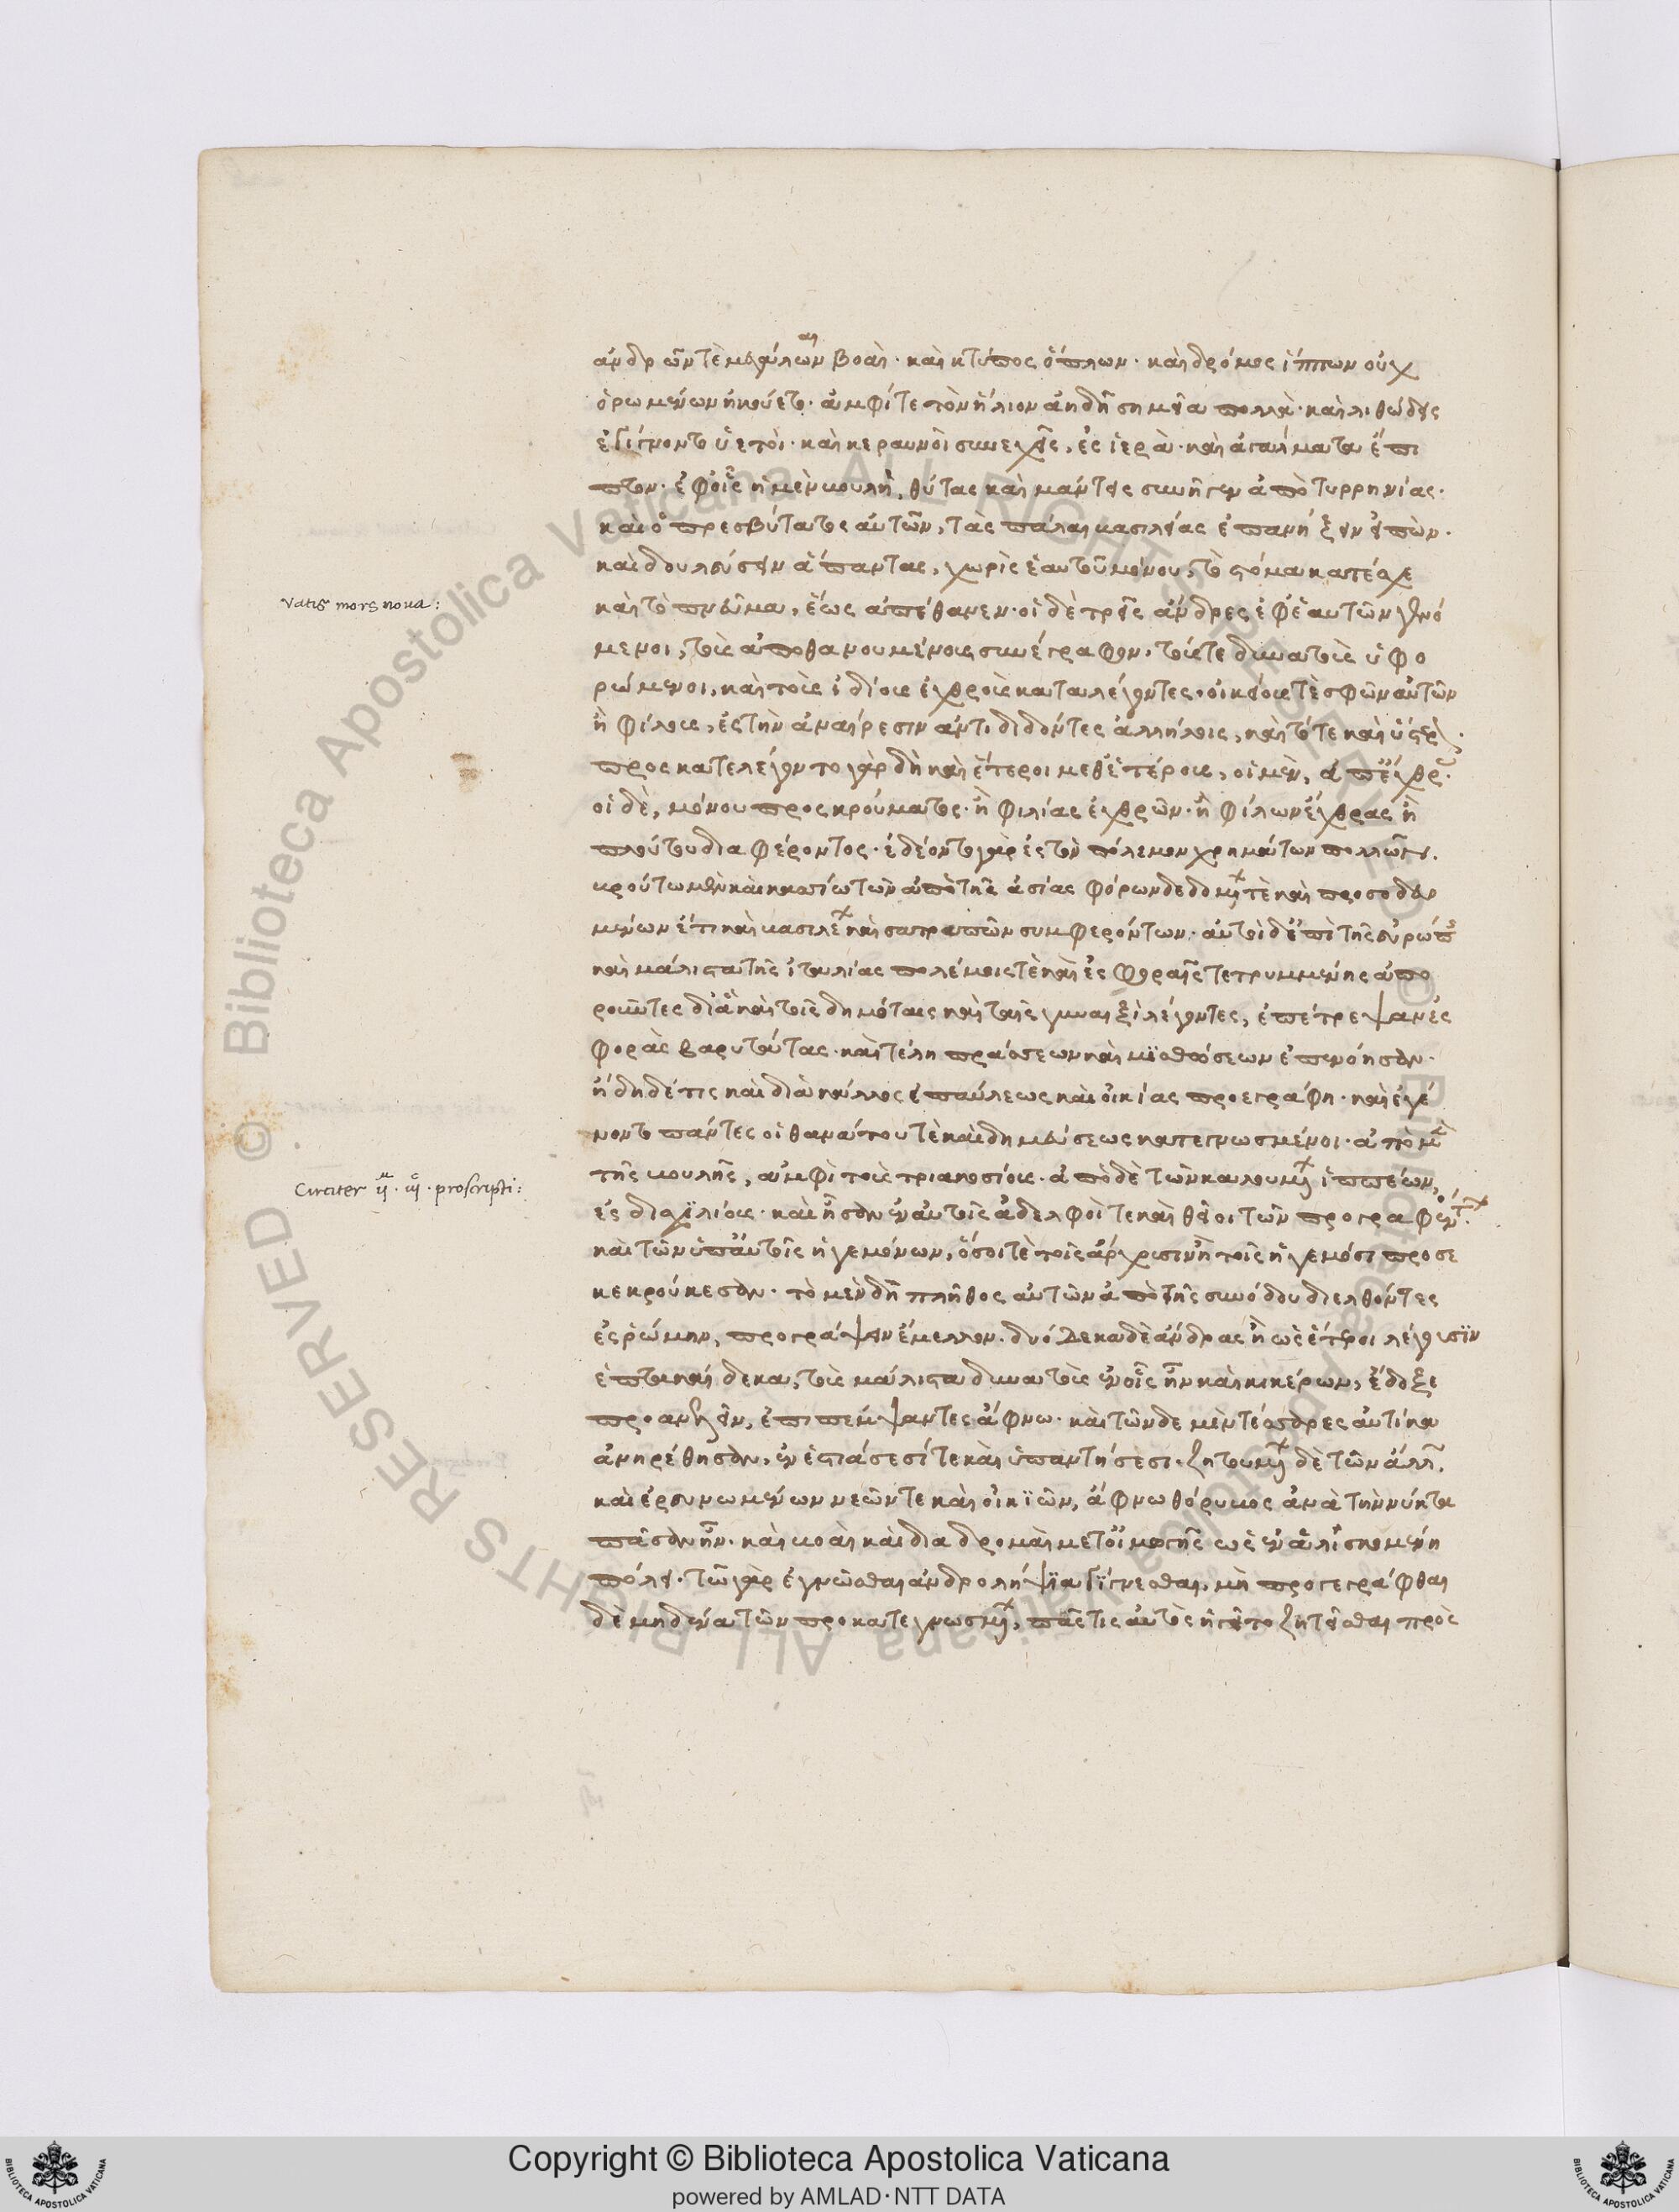 ἀνδρῶν τὲ μεγάλων βοαὶ· καὶ κτύπος ὅπλων· καὶ δρόμος ἵππων οὐχ
ὁρωμένων ἠκούετο· ἀμφί τε τὸν ἥλιον ἀηδῆ σημεῖα πολλὰ· καὶ λιθώδεις
ἐγίγνοντο ὑετοὶ· καὶ κεραυνοὶ συνεχεῖς, ἐς ἱερὰ· καὶ ἀγάλματα ἔπι
πτον· ἐφ' οἷς ἡ μὲν βουλὴ, θύτας καὶ μάντεις συνῆγεν ἀπὸ τυρρηνίας·
καὶ ὁ πρεσβύτατος αὐτῶν, τὰς πάλαι βασιλείας ἐπανήξειν εἰπὼν·
καὶ δουλεύσειν ἅπαντας, χωρὶς ἑαυτοῦ μόνου, τὸ στόμα κατέσχε
Vatis mors noua:
καὶ τὸ πνεῦμα, ἕως ἀπέθανεν· οἱ δὲ τρεῖς ἄνδρες ἐφ' ἑαυτῶν γενό
μενοι, τοὺς ἀποθανουμένους συνέγραφον, τούς τε δυνατοὺς ὑφο
ρώμενοι, καὶ τοὺς ἰδίους ἐχθροὺς καταλέγοντες· οἰκείους τὲ σφῶν αὐτῶν
ἢ φίλους, ἐς τὴν ἀναίρεσιν ἀντιδιδόντες ἀλλήλοις, καὶ τότε καὶ ὕστερ.
προσκατελέγοντο γὰρ δὴ καὶ ἕτεροι μεθ' ἑτέρους, οἱ μὲν, ἀπ' ἔχθρ.
οἱ δὲ, μόνου προσκρούματος· ἢ φιλίας ἐχθρῶν· ἢ φίλων ἔχθρας ἢ
πλούτου διαφέροντος· ἐδέοντο γὰρ ἐς τὸν πόλεμον χρημάτων πολλῶν.
βρούτω μὲν καὶ κασσίω τῶν ἀπὸ τῆς ἀσίας φόρων δεδομ τὲ καὶ προσοδευ
μένων ἔτι καὶ βασιλέ καὶ σατραπῶν συμφερόντων· αὐτοὶ δ' ἐπὶ τῆς εὐρώπ
καὶ μάλιστα τῆς ἰταλίας πολέμοις τὲ καὶ ἐσφοραῖς τετρυμμένης ἀπο
ροῦντες δι' ἃ καὶ τοῖς δημόταις καὶ ταῖς γυναιξὶ λέγοντες, ἐπέτρεψαν ἐς
φορὰς βαρυτάτας· καὶ τέλη πράσεων καὶ μϊσθώσεων ἐπενόησαν·
ἤδη δέ τις καὶ διὰ κάλλος ἐπαύλεως καὶ οἰκίας προεγράφη· καὶ ἐγέ
νοντο πάντες οἱ θανάτου τὲ καὶ δημεύσεως κατεγνωσμένοι· ἀπὸ μὲ
τῆς βουλῆς, ἀμφὶ τοὺς τριακοσίους· ἀπὸ δὲ τῶν καλουμ ἱππέων,
Circiter ij · iij · proscripti:
ἐς δισχϊλίους· καὶ ἦσαν ἐν αὐτοῖς ἀδελφοί τε καὶ θεῖοι τῶν προγραφέντ.
καὶ τῶν ὑπ' αὐτοῖς ἡγεμόνων, ὅσοι τὲ τοῖς ἄρχουσιν ἢ τοῖς ἡγεμόσι προσε
κεκρούκεσαν· τὸ μὲν δὴ πλῆθος αὐτῶν ἀπὸ τῆς συνόδου διελθόντες
ἐς ῥώμην, προγράψειν ἔμελλον· δυό δεκα δὲ ἄνδρας ἢ ὡς ἕτεροι λέγουσϊν
ἑπτακαίδεκα, τοὺς μάλιστα δυνατοὺς ἐν οἷς ἦν καὶ κικέρων, ἔδοξε
προανελεῖν, ἐπιπέμψαντες ἄφνω· καὶ τῶνδε μὲν τέσσαρες αὐτίκα
ἀνηρέθησαν, ἐν ἑστιάσεσί τε καὶ ὑπαντήσεσι· ζητουμ δὲ τῶν ἄλλ.
καὶ ἐρευνωμένων νεῶν τε καὶ οἰκϊῶν, ἄφνω θόρυβος ἀνὰ τὴν νύκτα
πᾶσαν ἦν· καὶ βοαὶ καὶ διαδρομαὶ μετ' οἰμωγῆς ὡς ἐν ἁλϊσκομένη
πόλει· τῶ γὰρ ἐγνῶσθαι ἀνδροληψΐα γΐγνεσθαι, μὴ προγεγράφθαι
δὲ μηδένα τῶν προκατεγνωσμ, πᾶς τις αὐτὸς ἡγεῖτο ζητεῖσθαι πρὸς
Copyright © Biblioteca Apostolica Vaticana
powered by AMLAD·NTT DATA